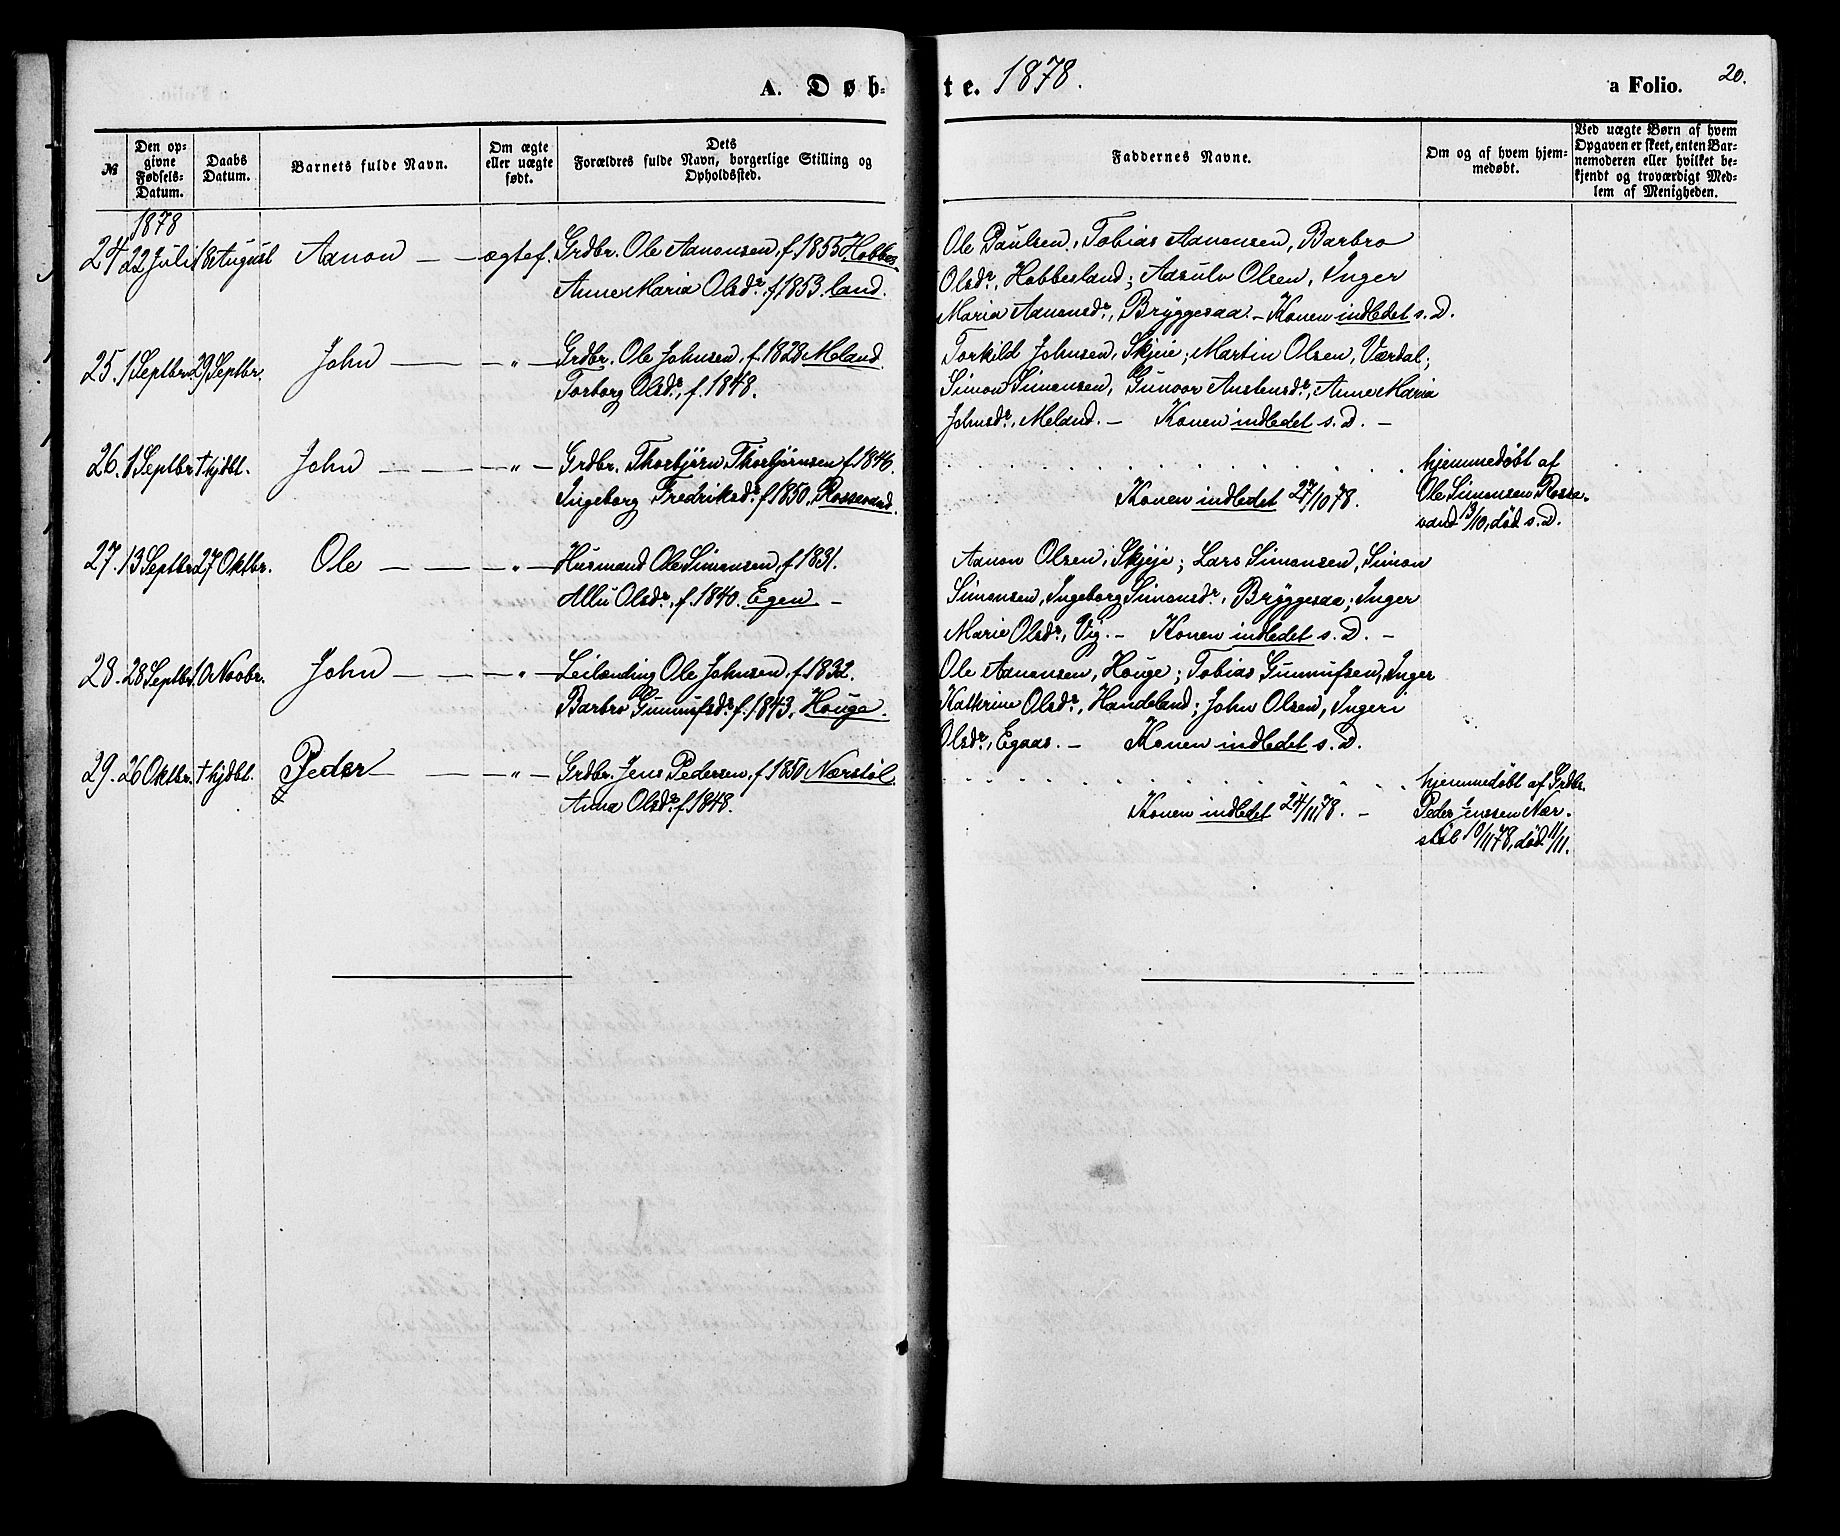 A. Døb-
te. 1878.
a Folio. 20.
№
Den op-
givne
Fødsels-
Datum.
Daabs
Datum.
Barnets fulde Navn.
Om ægte
eller uægte
født.
Dets
Forældres fulde Navn, borgerlige Stilling og
Opholdssted.
Faddernes Navne.
Om og af hvem hjem-
medøbt.
Ved uægte Børn af hvem
Opgaven er skeet, enten Bar-
nemoderen eller hvilket be-
kjendt og troværdigt Med-
lem af Menigheden.
1878
24 22 Juli 18 August Aanon — — ægtef. Grdbr. Ole Aanonsen, f. 1855 Hobbes
Anne Maria Olsdr. f 1853. land.
Ole Paulsen, Tobias Aanonsen, Barbro
Olsdr, Hobbesland; Aasulv Olsen, Inger
Maria Aanonsdr, Bryggesaa. – Konen indledet s. D.
25. 1 Septbr. 29 Septbr. John — — „ — Grdbr. Ole Johnsen, f. 1828 Meland.
Torborg Olsdr, f. 1848.
Torkild Johnsen, Skjeie; Martin Olsen, Værdal;
Simon Simonsen, Gunvor Austensdr, Anne Maria
Johnsdr, Meland. – Konen indledet s. D. –
26. 1 Septbr. † hjdbt. John — — „ — Grdbr. Thorbjørn Thorbjørnsen f 1846.
Ingeborg Fredriksdr. f 1850. Rossevand.
Konen indledet 27/10 78.
hjemmedøbt af
Ole Simonsen Rosse-
vand 13/10, død s. D.
27. 13 Septbr. 27 Oktbr. Ole — — „ — Husmand Ole Simonsen, f 1831.
Allu Olsdr, f. 1840. Egen –
Aanon Olsen, Skjeje; Lars Simonsen, Simon
Simonsen, Ingeborg Simonsdr, Bryggesaa; Inger
Marie Olsdr, Vig. – Konen indledet s. D. –
28. 28 Septbr. 10 Novbr. John — — „ — Leilænding Ole Johnsen, f. 1832.
Barbro Gunnufsdr. f. 1843, Houge.
Ole Aanonsen, Houge; Tobias Gunnufsen, Inger
Kathrine Olsdr, Handeland; John Olsen, Ingeri
Olsdr, Egaas. – Konen indledet s. D.
29. 26 Oktbr. † hjdbt. Peder — — „ — Grdbr. Jens Pedersen, f. 1850 Nærstøl.
Anna Olsdr. f. 1848.
Konen indledet 24/11 78. –
hjemmedøbt af Grdbr.
Peder Jenssen Nær-
støl 10/11 78, død 11/11.